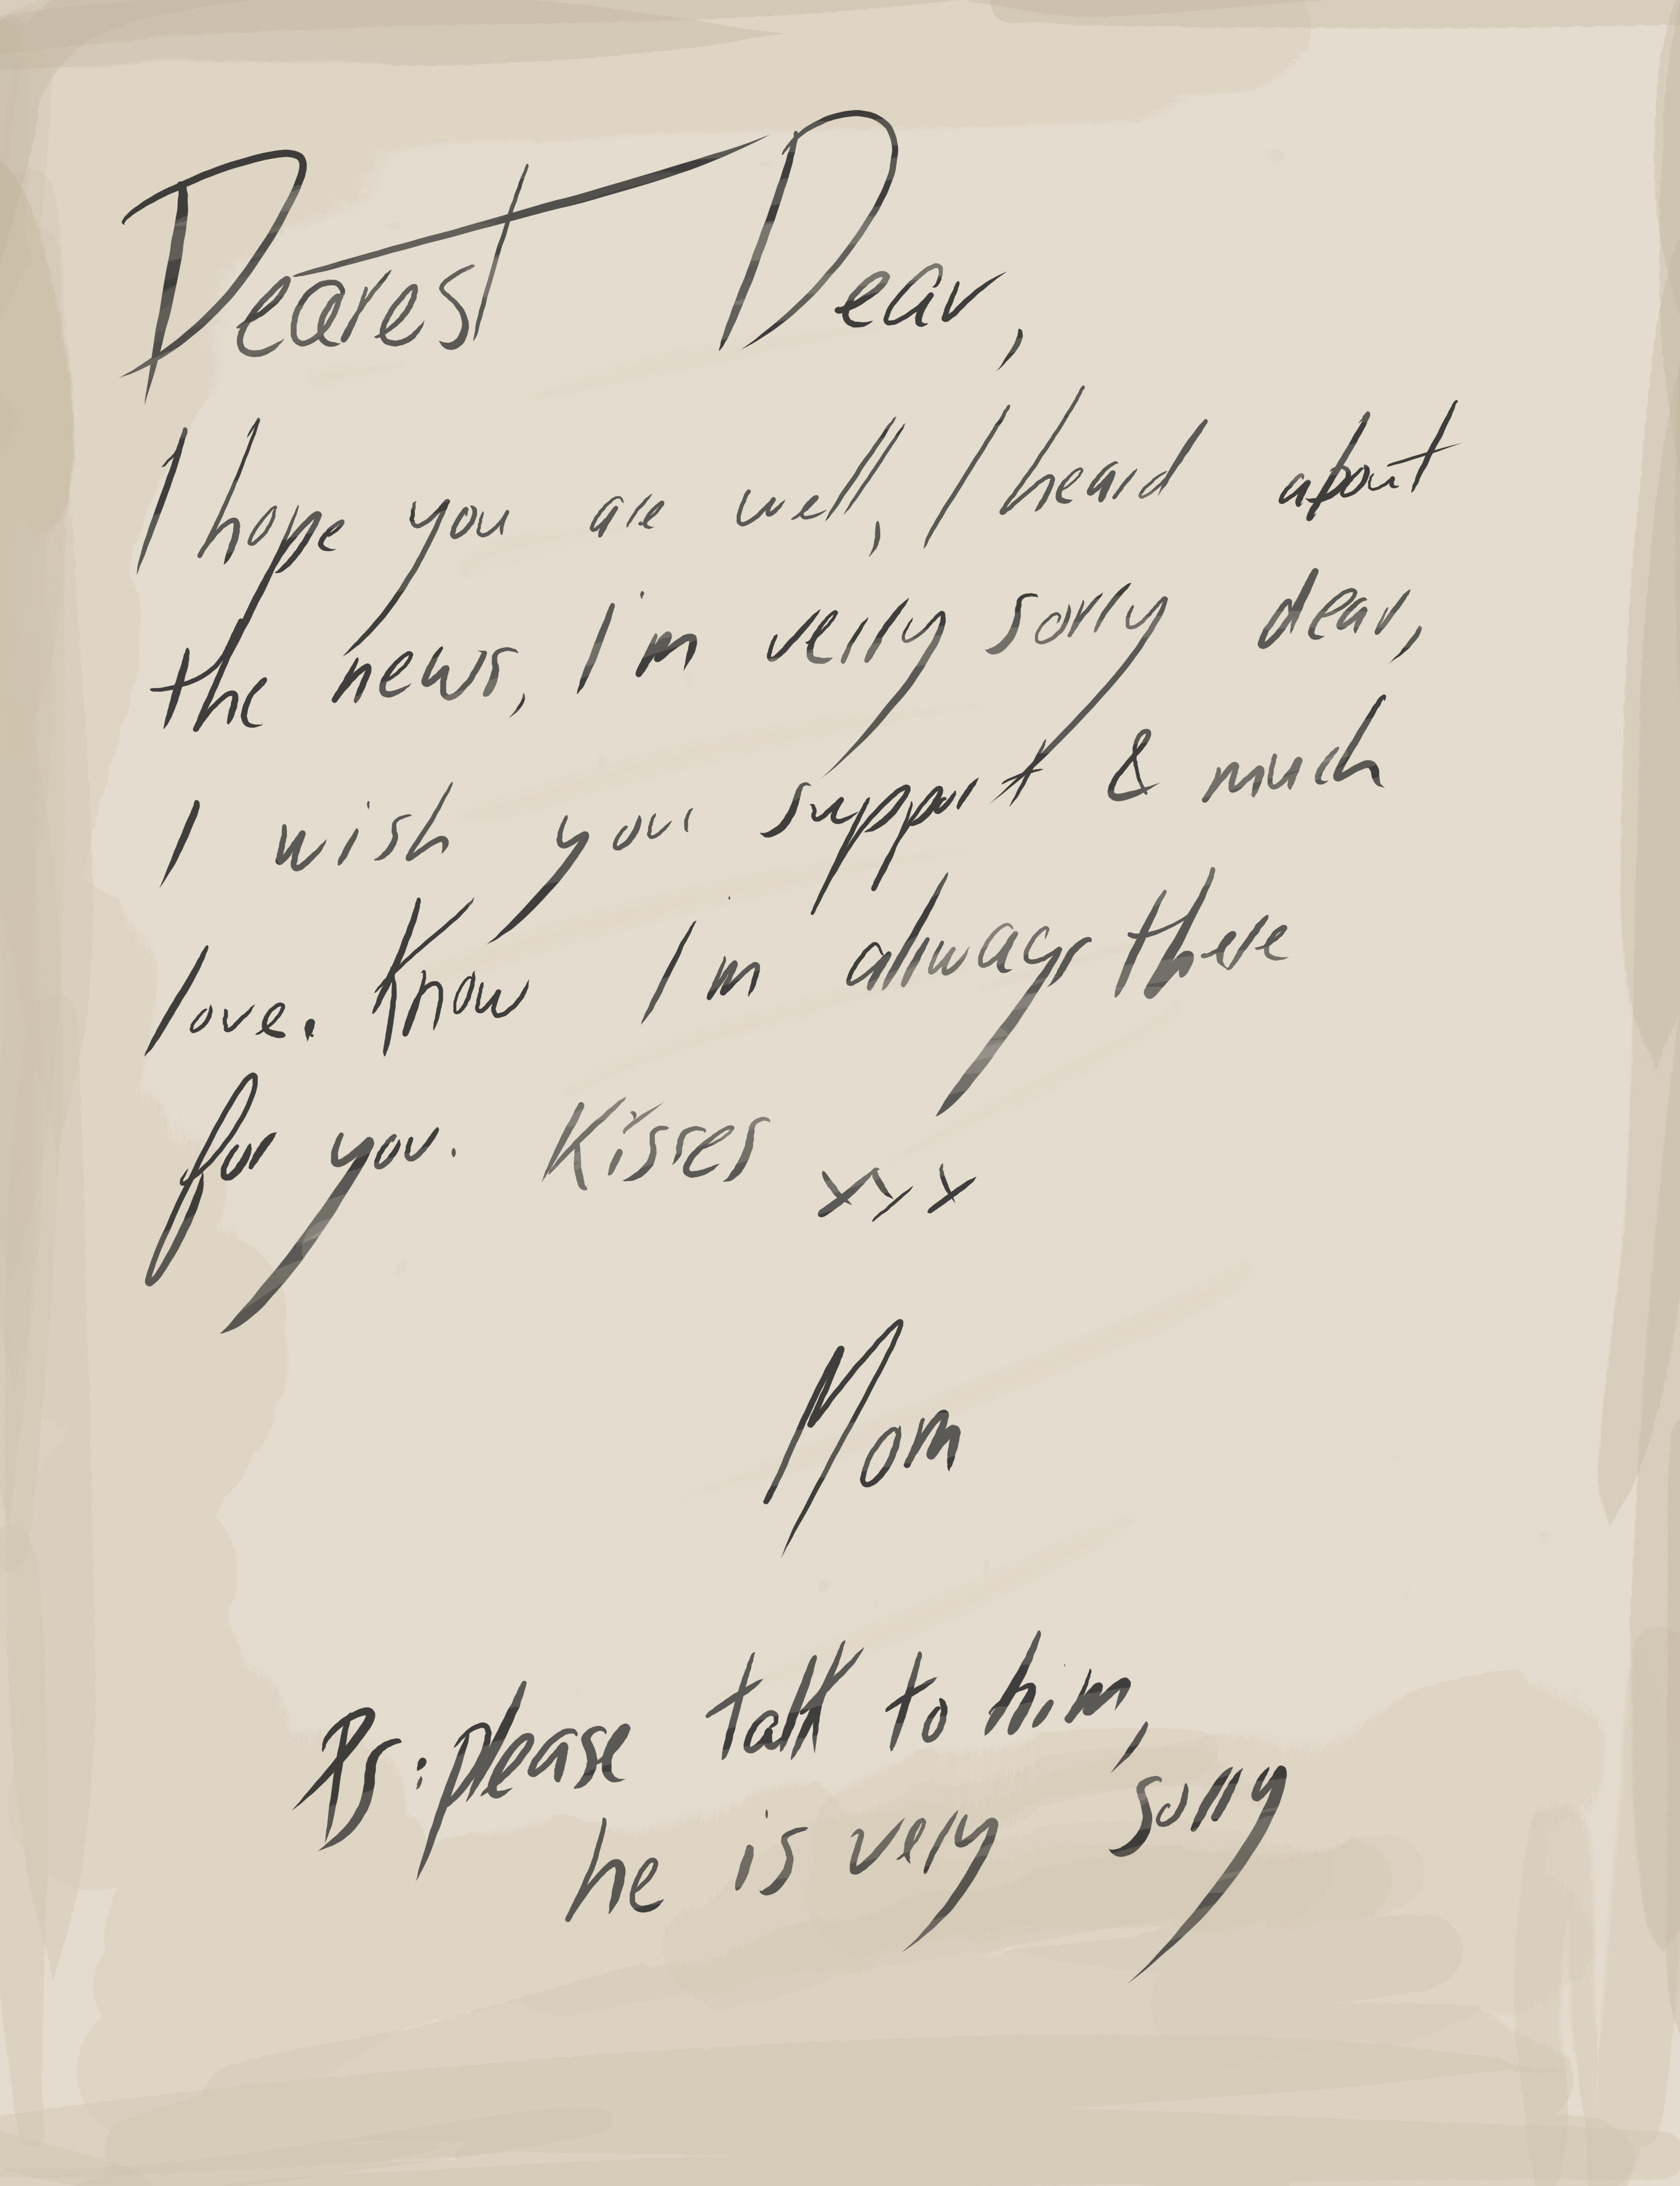 Dearest Dear,
I hope you are well, I heard about
the news, I'm verry sorry dear,
I wish your support & much
love. Know I'm allways there
for you. Kisses xxx
Mom
Ps: please talk to him,
he is very sorry